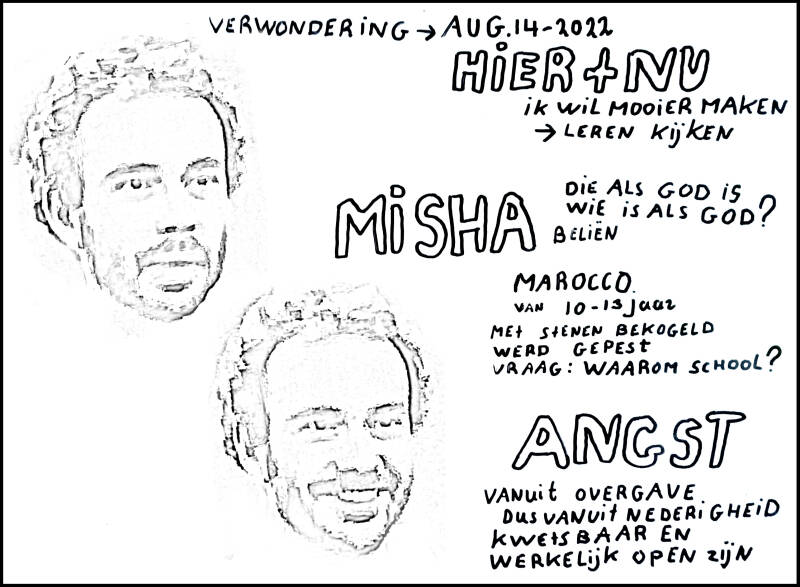 VERWONDERING → AUG.14-2022
HIER + NU
iK WiL MOOiER MAKEN
→ LEREN KijKEN
MiSHA
DiE ALS GOD iS
WiE iS ALS GOD?
BELiËN
MAROCCO.
VAN 10-13 jaar
MET STENEN BEKOGELD
WERD GEPEST
VRAAG: WAAROM SCHOOL?
ANGST
VANUiT OVERGAVE
DUS VANUiT NEDERiGHEiD
KWETSBAAR EN
WERKELijK OPEN ZijN